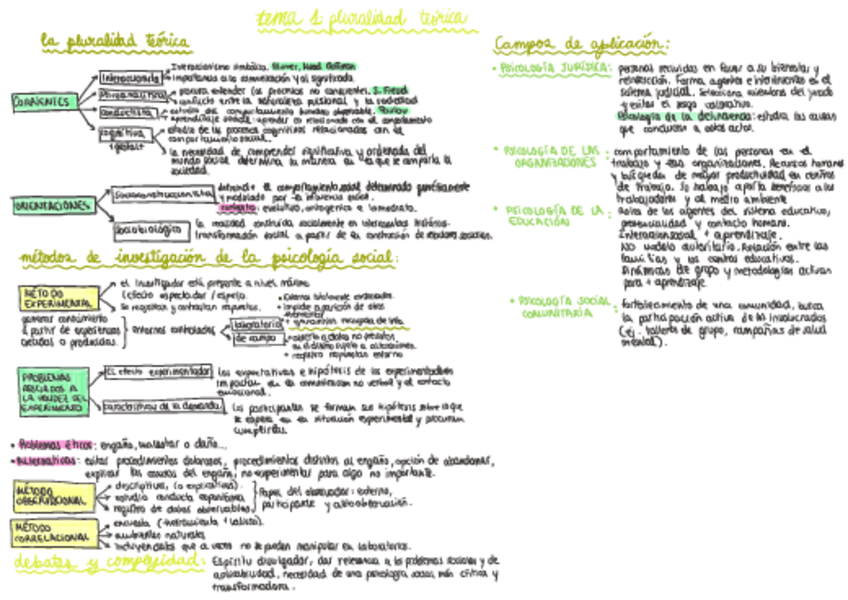 tema 1 pluralidad teórica
la pluralidad teórica
CORRIENTES
Interaccionista
Interaccionismo simbólico. Blumer, Mead, Goffman
importancia a la comunicación y al significado
Psicoanalítica
procura entender los procesos no conscientes. S. Freud
conflicto entre la naturaleza pulsional y la sociedad
conductista
estudio del comportamiento humano observable. Pavlov
aprendizaje social: aprender es relacionado con el comportamiento
cognitiva
+gestalt
estudio de los procesos cognitivos relacionados con el
comportamiento social.
la necesidad de comprender significativa y ordenada del
mundo social determina la manera en la que se comporta la
sociedad.
ORIENTACIONES
Socioconstruccionista
el comportamiento social determinado genéticamente
y modulado por la influencia social.
contexto: evolutivo, ontogénico e inmediato.
Sociobiológico
la realidad construida socialmente en interacciones históricas.
transformación social a partir de la construcción de sociales.
métodos de investigación de la psicología social:
MÉTODO
EXPERIMENTAL
el investigador está presente a nivel máximo
(efecto espectador / espejo.
Se registran y contrastan respuestas.
generar conocimiento
a partir de experiencias
creadas o producidas.
entornos controlados
laboratorio
de campo
+ Entorno totalmente controlado.
+ impide aparición de otros
+ recogida de info.
+ registro respuestas entorno
PROBLEMAS
ASOCIADOS A
LA VALIDEZ DEL
EXPERIMENTO
EL efecto experimentador
las expectativas e hipótesis de los experimentadores
impactan en la comunicación no verbal y el contacto
emocional.
características de la demanda
Los participantes se forman sus hipótesis sobre lo que
se espera en la situación experimental y procuran
cumplirlas.
• Problemas éticos: engaño, malestar o daño...
• Alternativas: evitar procedimientos dolorosos, procedimientos distintos al engaño, opción de abandonar,
explicar las causas del engaño, no experimentar para algo no importante.
MÉTODO
OBSERVACIONAL
descriptivos, (o explicativos).
estudio conducta espontánea
registro de datos observables
Papel del observador: externo,
participante y autoobservación.
MÉTODO
CORRELACIONAL
encuesta (+instrumento + utilizado).
ambientes naturales
incluyen datos que a veces no se pueden manipular en laboratorios.
debates y complejidad:
Espíritu divulgador, dar relevancia a los problemas sociales y de
aplicabilidad, necesidad de una psicología social más crítica y
transformadora.
Campos de aplicación:
• PSICOLOGÍA JURÍDICA:
personas recluidas en favor a su bienestar y
reinserción. Forma agentes e intervinientes en el
sistema judicial. Selecciona miembros del jurado
y evitar el sesgo valorativo.
Psicología de la delincuencia: estudia las causas
que conducen a estos actos.
• PSICOLOGÍA DE LAS
ORGANIZACIONES
comportamiento de las personas en el
trabajo y sus organizaciones. Recursos humanos
y búsqueda de mayor productividad en centros
de trabajo. Su trabajo aporta beneficios a los
trabajadores y al medio ambiente
• PSICOLOGÍA DE LA
EDUCACIÓN
Roles de los agentes del sistema educativo,
presencialidad y contacto humano.
Interacción social + aprendizaje.
NO modelo autoritario. Relación entre las
familias y los centros educativos.
Dinámicas de grupo y metodologías activas
para + aprendizaje.
• PSICOLOGÍA SOCIAL
COMUNITARIA
: fortalecimiento de una comunidad, busca
la participación activa de los involucrados
(ej. talleres de grupo, campañas de salud
mental).